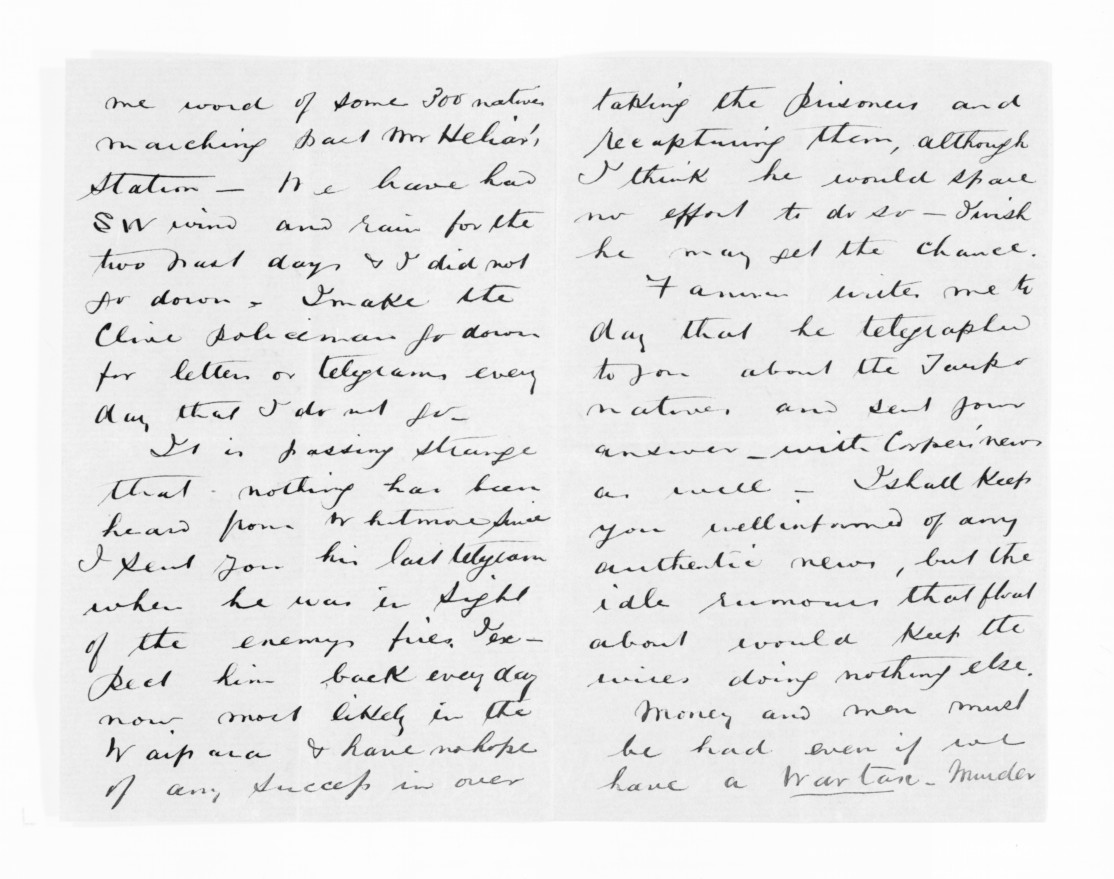 me word of some 300 natives
marching past Mr Helias's
station — We have had
SW wind and rain for the
two past days & I did not
go down. I make the
Clive policeman go down
for letters or telegrams every
day that I do not go —
It is passing strange
that nothing has been
heard from Whitmore since
I sent you his last telegram
when he was in sight
of the enemys fires. I ex-
pect him back every day
now most likely in the
Waipara & have no hope
of any success in over
taking the prisoners and
recapturing them, although
I think he would spare
no effort to do so — I wish
he may get the chance.
writes me to
day that he telegraphed
to you about the Taupo
natives and sent your
answer — with Corper's news
as well — I shall keep
you well informed of any
authentic news, but the
idle rumours that float
about would keep the
wires doing nothing else.
Money and men must
be had even if we
have a War tax — Murder